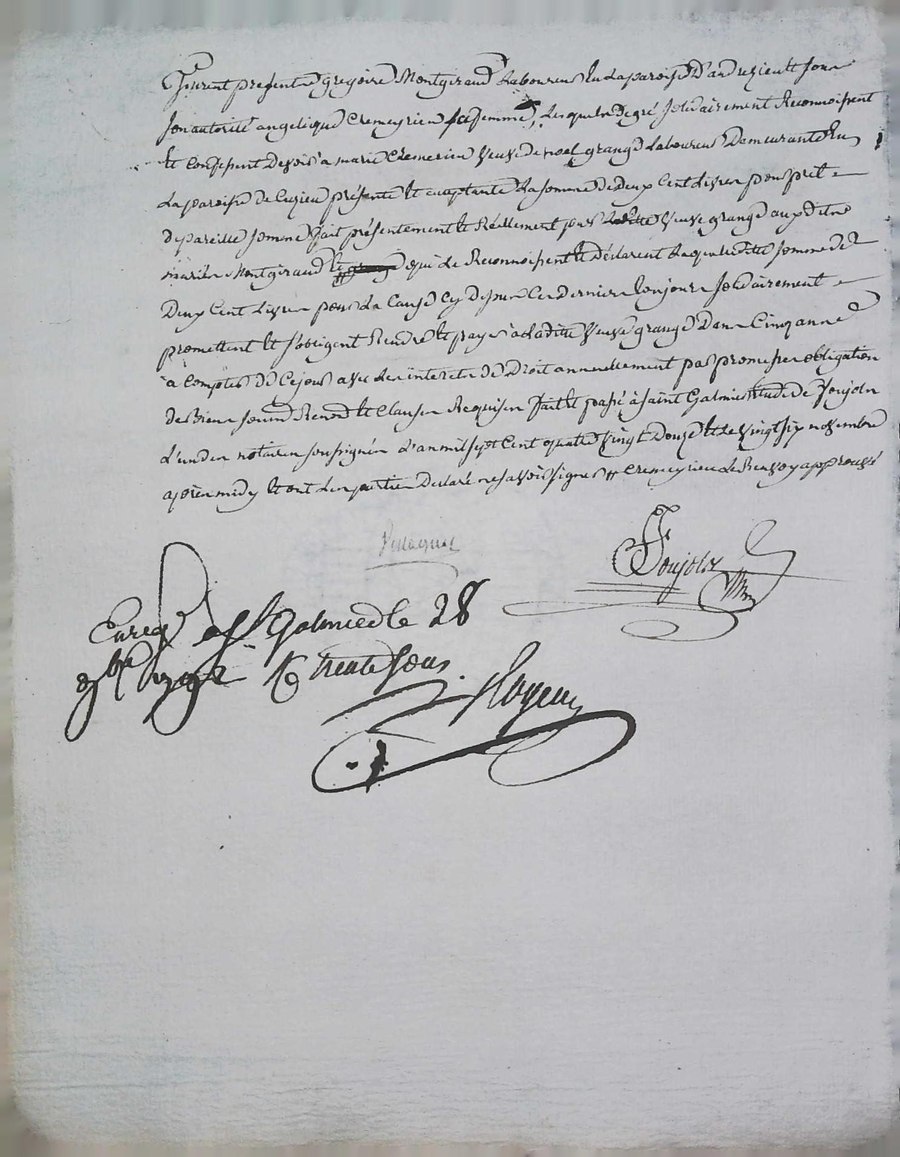 furent presents gregoire Montgiraud Laboureur En La paroisse D'andrezieu Et sous
son autorité angelique Cremeyrieu sa femme, Lesquels de gré solidairement Reconnoissent
Et Confessent Devoir a marie Cremerieu Veuve de noel grange Laboureur Demeurante En
La paroisse de Cuzieu présente Et acceptante La somme de deux Cent Livres pour prêt
de pareille somme fait présentement Et Réellement par Laditte Veuve grange auxdits
mariés Montgiraud qui Le Reconnoissent Et Déclarent Laquelle ditte somme de
Deux Cent Livres pour La Cause Cy Dessus Ces derniers Toujours solidairement
promettent Et s'obligent Rendre Et payer à Laditte Veuve grange Dans Cinq années
à Compter De Ce jour avec Les interets De Droit annuellement par promesse obligation
de Biens soumis Renon Et Clauses Requises fait Et passé à saint Galmier Etude De Poujols
L'un des notaires soussignés L'an mil sept Cent quatre Vingt Douze Et Le Vingt six novembre
après midy Et ont Les parties Declaré ne savoir signer Cremeyrieu De Renvoy approuvé
Poujols
Enreg à St Galmier le 28
9bre 1792 Rç trente sous